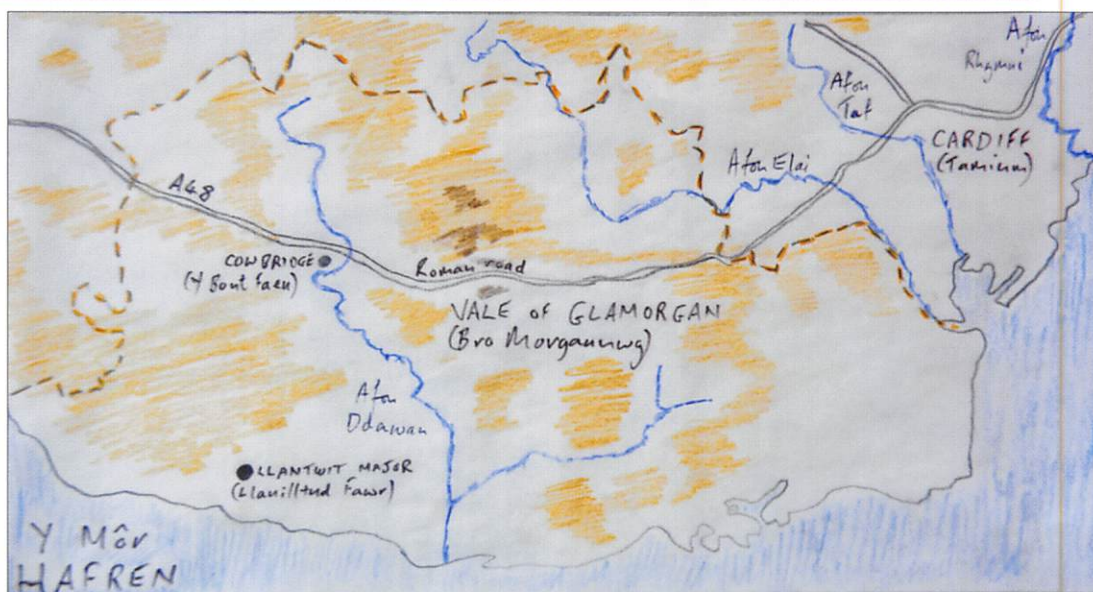 Afon
Rhymni
Afon
Taf
CARDIFF
(Tamium)
Afon Elai
A48
COWBRIDGE
(Y Bont Faen)
Roman road
VALE OF GLAMORGAN
(Bro Morgannwg)
Afon
Ddawan
LLANTWIT MAJOR
(Llanilltud Fawr)
Y Môr
HAFREN